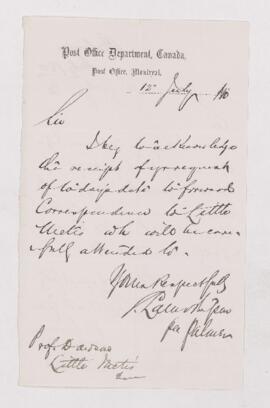 Post Office Department, Canada,
Post Office, Montreal,
12 July
Sir
I beg to acknowledge
the receipt of yr request
of to days date to forward
Correspondence to Little
Metis wh will be care
fully attended to.
Yours Respectfully
Prof. Dawson
Little Metis